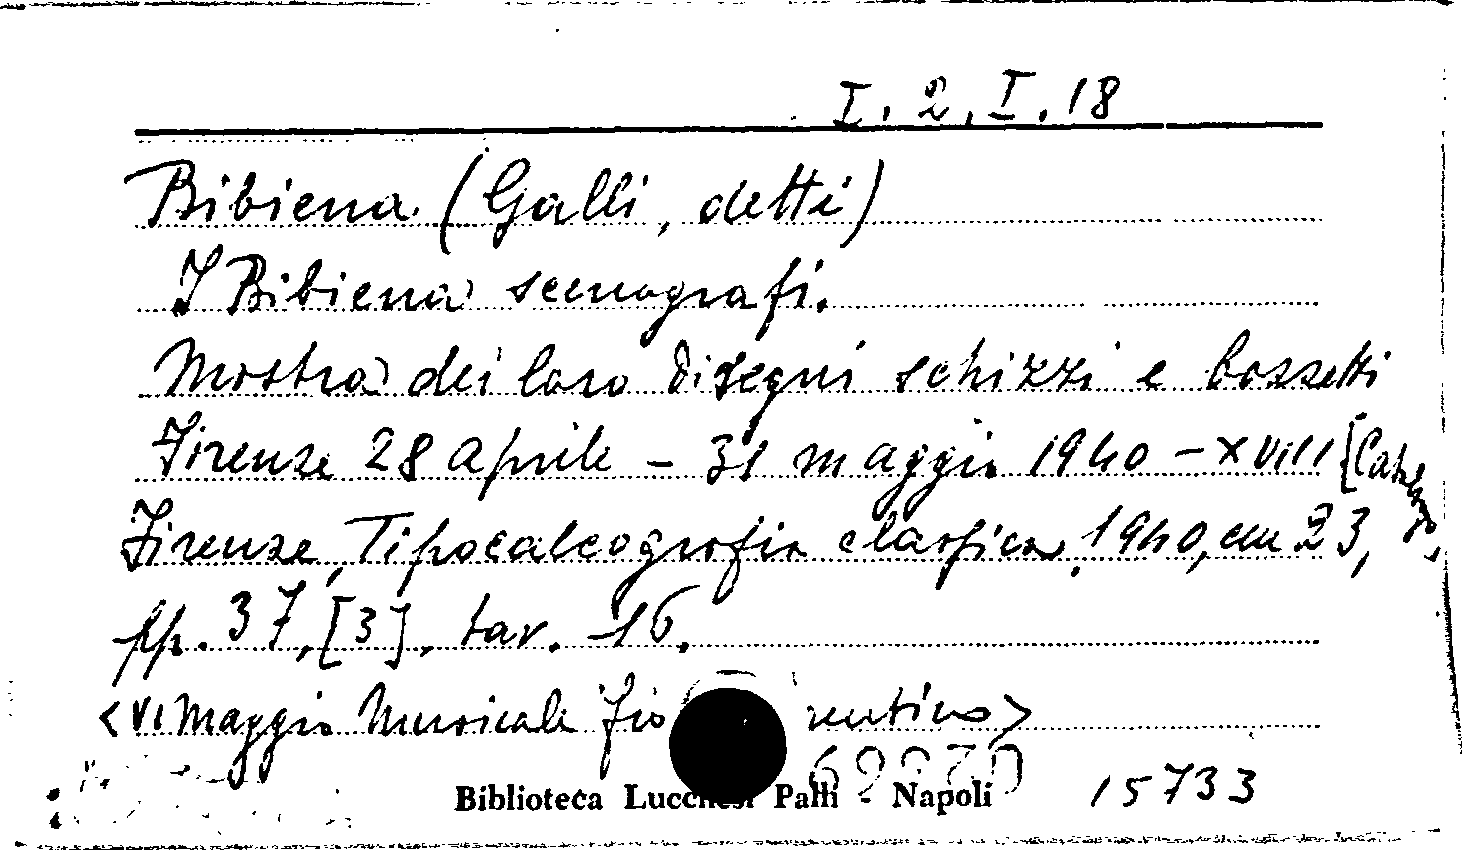 I. 2. I. 18
Bibiena (Galli, detti)
I Bibiena scenografi.
Mostra dei loro disegni schizzi e bozzetti
Firenze 28 aprile - 31 maggio 1940 - XVIII [Catalogo].
Firenze, Tipocalcografia classica, 1940, cm 23,
pp. 37, [3], tav. 16.
<VI Maggio Musicale fiorentino>
Biblioteca Lucchesi Palli - Napoli 15733